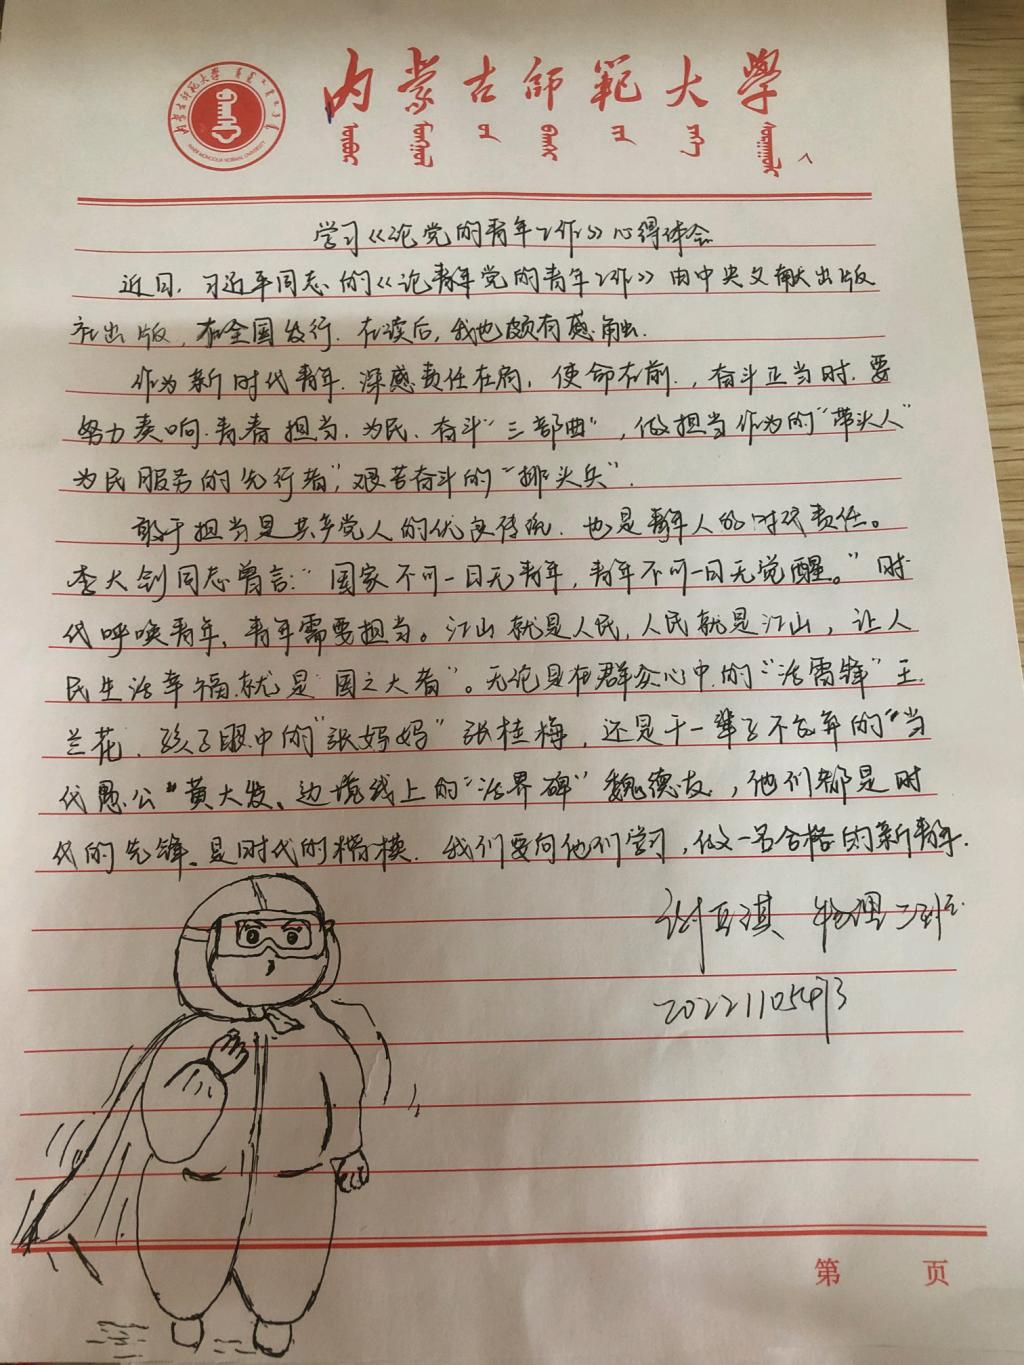 内蒙古师范大学
INNER MONGOLIA NORMAL UNIVERSITY
内蒙古師範大學
学习《论党的青年工作》心得体会
近日,习近平同志的《论青年党的青年工作》由中央文献出版
社出版,在全国发行.在读后,我也颇有感触.
作为新时代青年.深感责任在肩,使命在前.,奋斗正当时.要
努力奏响.青春担当.为民.奋斗"三部曲",做担当作为的"带头人"
为民服务的先行者",艰苦奋斗的"排头兵".
敢于担当是共产党人的优良传统.也是青年人的时代责任。
李大钊同志曾言:"国家不可一日无青年,青年不可一日无觉醒。"时
代呼唤青年、青年需要担当。江山就是人民,人民就是江山,让人
民生活幸福.就是"国之大者"。无论是在群众心中.的"活雷锋"王
兰花、孩子眼中的"张妈妈"张桂梅,还是干一辈子不放弃的"当
代愚公"黄大发、边境线上的"活界碑"魏德友,他们都是时
代的先锋、是时代的楷模.我们要向他们学习,做一名合格的新青年.
物理二班
第 页